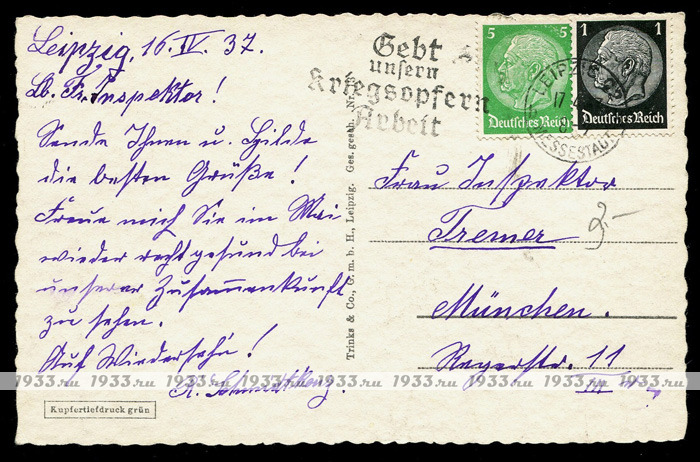 Leipzig, 16. IV. 37.
Lb. Fr. Inspektor!
Sende Ihnen u. Hilde
die besten Grüße!
Freue mich Sie im Mai
wieder recht gesund bei
unserer Zusammenkunft
zu sehen.
Auf Wiederseh'n!
Kupfertiefdruck grün
Trinks & Co., G. m. b. H., Leipzig. Ges. gesch. Nr.
Gebt
unsern
Kriegsopfern
Arbeit
5 5
Deutsches Reich
1 1
Deutsches Reich
LEIPZIG
17
MESSESTADT
Frau Inspektor
Tremer
2.-
München.
Regerstr. 11
III
1933.ru 1933.ru 1933.ru 1933.ru 1933.ru 1933.ru 1933.ru 1933.ru